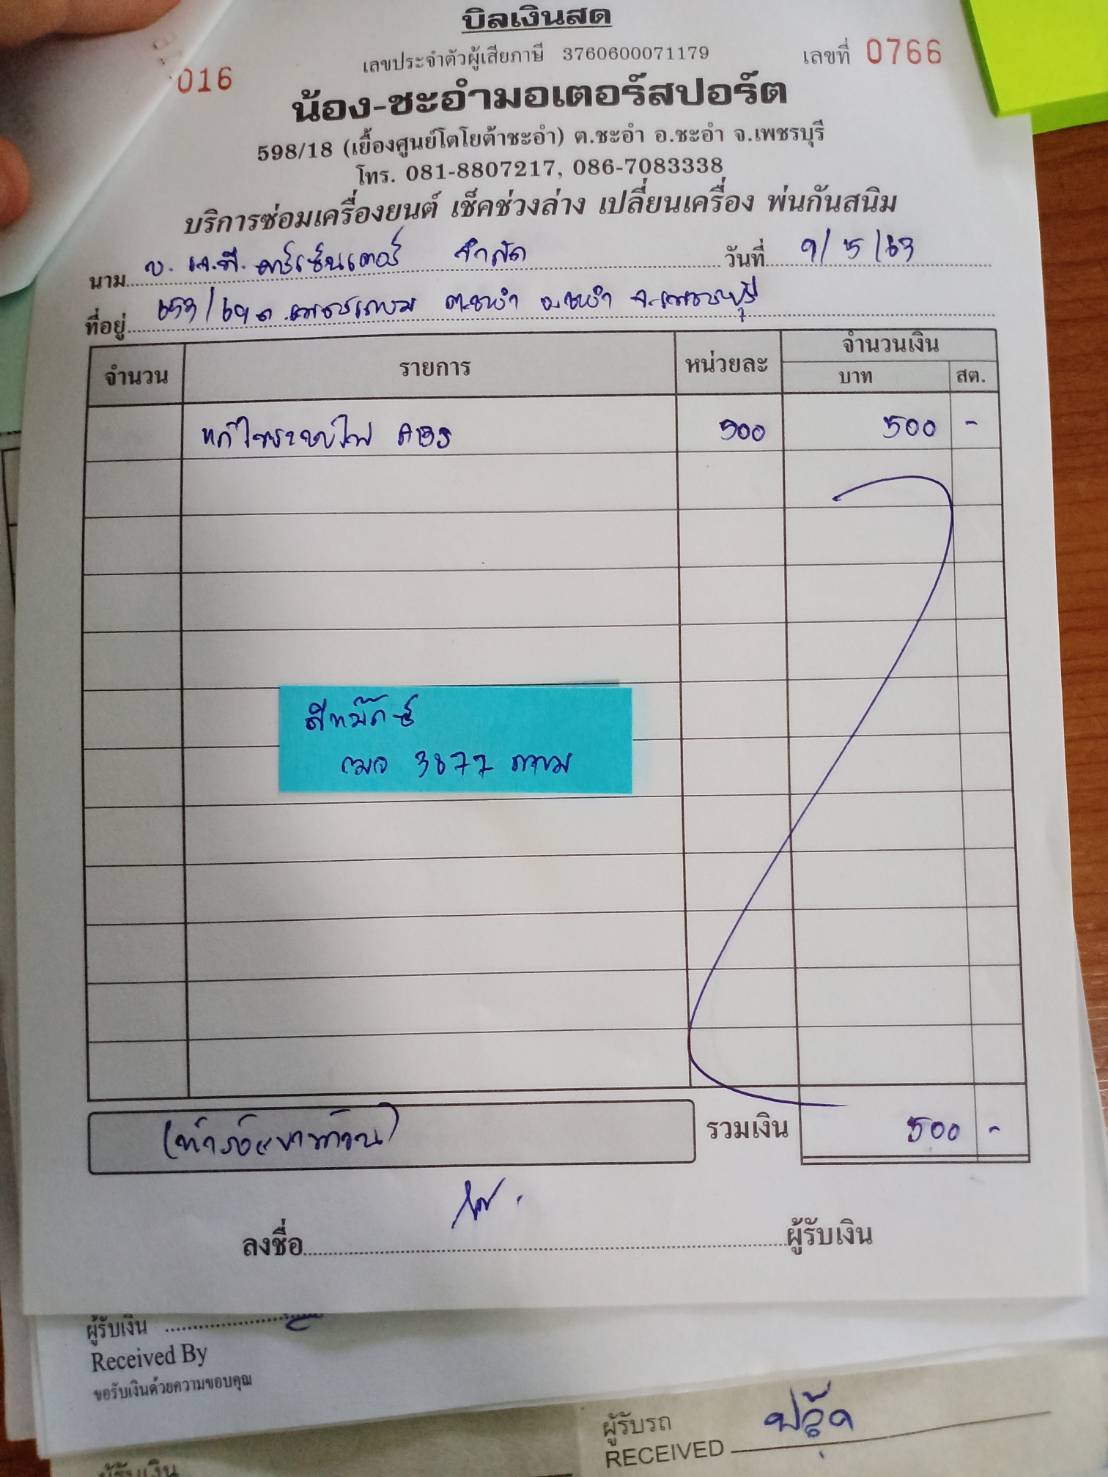 บิลเงินสด
เลขประจำตัวผู้เสียภาษี 3760600071179 เลขที่ 0766
016
น้อง-ชะอำมอเตอร์สปอร์ต
598/18 (เยื้องศูนย์โตโยต้าชะอำ) ต.ชะอำ อ.ชะอำ จ.เพชรบุรี
โทร. 081-8807217, 086-7083338
บริการซ่อมเครื่องยนต์ เช็คช่วงล่าง เปลี่ยนเครื่อง พ่นกันสนิม
นาม บ. เจ.พี. คาร์เซ็นเตอร์ จำกัด วันที่ 9/5/63
ที่อยู่ ถ.เพชรเกษม ต.ชะอำ อ.ชะอำ จ.เพชรบุรี
จำนวน รายการ หน่วยละ จำนวนเงิน
บาท สต.
แก้ไขระบบไฟ ABS 500 500 -
3877 กทม
(ห้าร้อยบาทถ้วน) รวมเงิน 500 -
ลงชื่อ ผู้รับเงิน
ผู้รับเงิน
Received By
ขอรับเงินด้วยความขอบคุณ
ผู้รับรถ
RECEIVED
ผู้รับเงิน